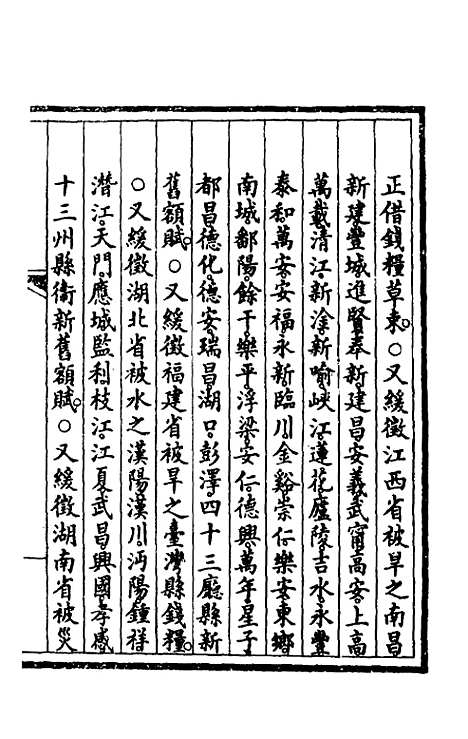 正借錢糧草束。○又緩徵江西省被旱之南昌
新建豐城進賢奉新建昌安義武甯高安上高
萬載清江新淦新喻峽江蓮花廬陵吉水永豐
泰和萬安安福永新臨川金谿崇仁樂安東鄉
南城鄱陽餘干樂平浮梁安仁德興萬年星子
都昌德化德安瑞昌湖口彭澤四十三廳縣新
舊額賦。○又緩徵福建省被旱之臺灣縣錢糧。
○又緩徵湖北省被水之漢陽漢川沔陽鍾祥
潛江天門應城監利枝江江夏武昌興國孝感
十三州縣衞新舊額賦。○又緩徵湖南省被災